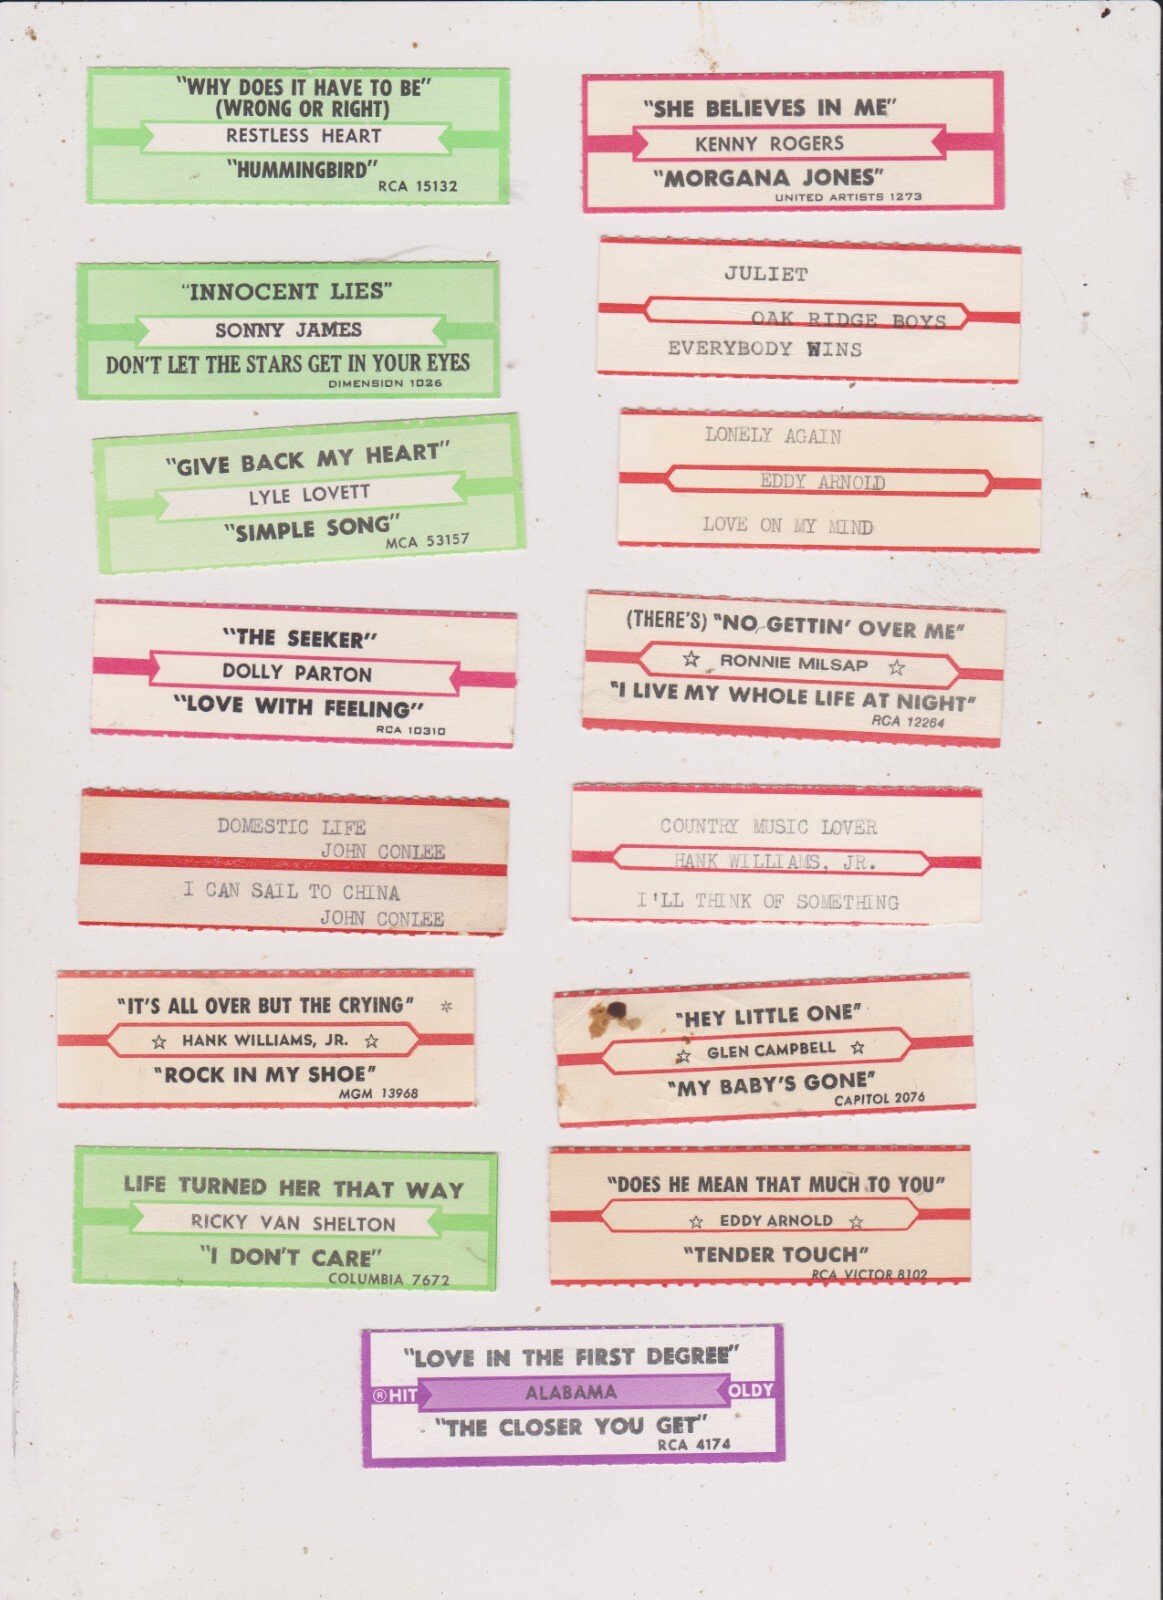 "WHY DOES IT HAVE TO BE"
(WRONG OR RIGHT)
RESTLESS HEART
"HUMMINGBIRD"
RCA 15132
"SHE BELIEVES IN ME"
KENNY ROGERS
"MORGANA JONES"
UNITED ARTISTS 1273
"INNOCENT LIES"
SONNY JAMES
DON'T LET THE STARS GET IN YOUR EYES
DIMENSION 1026
JULIET
OAK RIDGE BOYS
EVERYBODY WINS
"GIVE BACK MY HEART"
LYLE LOVETT
"SIMPLE SONG"
MCA 53157
LONELY AGAIN
EDDY ARNOLD
LOVE ON MY MIND
"THE SEEKER"
DOLLY PARTON
"LOVE WITH FEELING"
RCA 10310
(THERE'S) "NO GETTIN' OVER ME"
☆ RONNIE MILSAP ☆
"I LIVE MY WHOLE LIFE AT NIGHT"
RCA 12264
DOMESTIC LIFE
JOHN CONLEE
I CAN SAIL TO CHINA
JOHN CONLEE
COUNTRY MUSIC LOVER
HANK WILLIAMS, JR.
I'LL THINK OF SOMETHING
"IT'S ALL OVER BUT THE CRYING" *
☆ HANK WILLIAMS, JR. ☆
"ROCK IN MY SHOE"
MGM 13968
"HEY LITTLE ONE"
☆ GLEN CAMPBELL ☆
"MY BABY'S GONE"
CAPITOL 2076
LIFE TURNED HER THAT WAY
RICKY VAN SHELTON
"I DON'T CARE"
COLUMBIA 7672
"DOES HE MEAN THAT MUCH TO YOU"
☆ EDDY ARNOLD ☆
"TENDER TOUCH"
RCA VICTOR 8102
"LOVE IN THE FIRST DEGREE"
®HIT ALABAMA OLDY
"THE CLOSER YOU GET"
RCA 4174